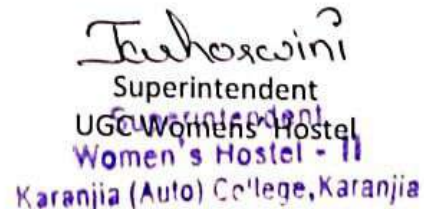 Superintendent
UGC Womens' Hostel
Superintendent
Women's Hostel - II
Karanjia (Auto) College, Karanjia